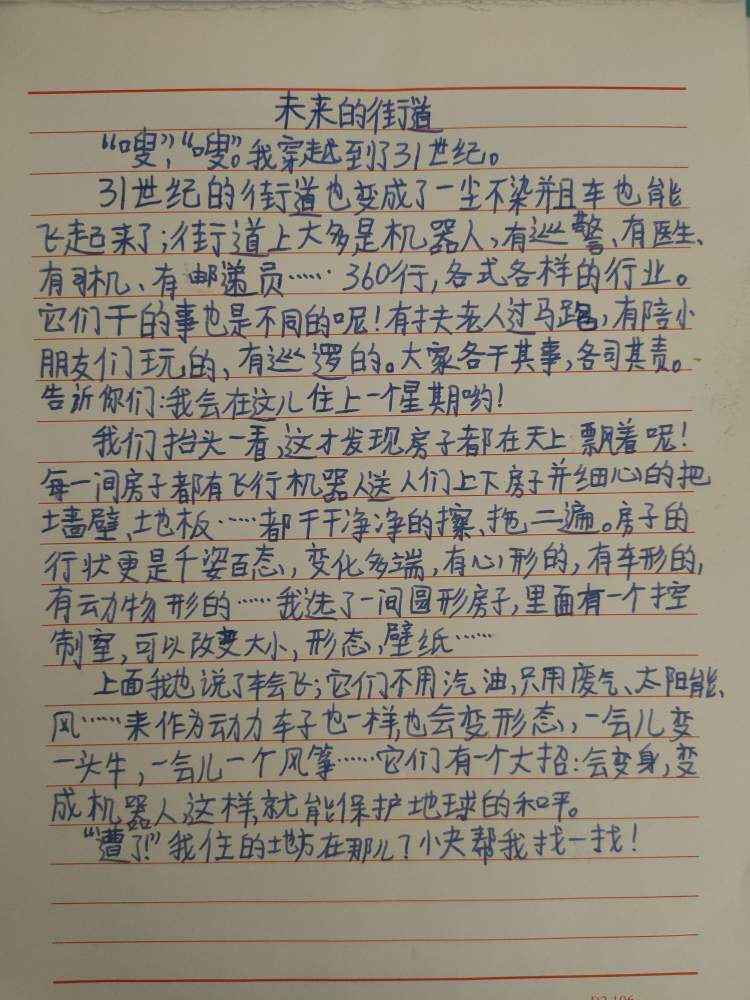 未来的街道
“嗖”，“嗖”。我穿越到了31世纪。
31世纪的街道也变成了一尘不染并且车也能
飞起来了；街道上大多是机器人，有巡警、有医生、
有司机、有邮递员……360行，各式各样的行业。
它们干的事也是不同的呢！有扶老人过马路，有陪小
朋友们玩的，有巡逻的。大家各干其事，各司其责。
告诉你们：我会在这儿住上一个星期哟！
我们抬头一看，这才发现房子都在天上飘着呢！
每一间房子都有飞行机器人送人们上下房子并细心的把
墙壁、土地板……都干干净净的擦、拖二遍。房子的
行状更是千姿百态，变化多端，有心形的，有车形的，
有动物形的……我选了一间圆形房子，里面有一个控
制室，可以改变大小，形态，壁纸……
上面我也说了车会飞；它们不用汽油，只用废气、太阳能、
风……来作为动力车子也一样，也会变形态，一会儿变
一头牛，一会儿一个风筝……它们有一个大招：会变身，变
成机器人，这样，就能保护地球的和平。
“遭了！”我住的地方在那儿？小夹帮我找一找！